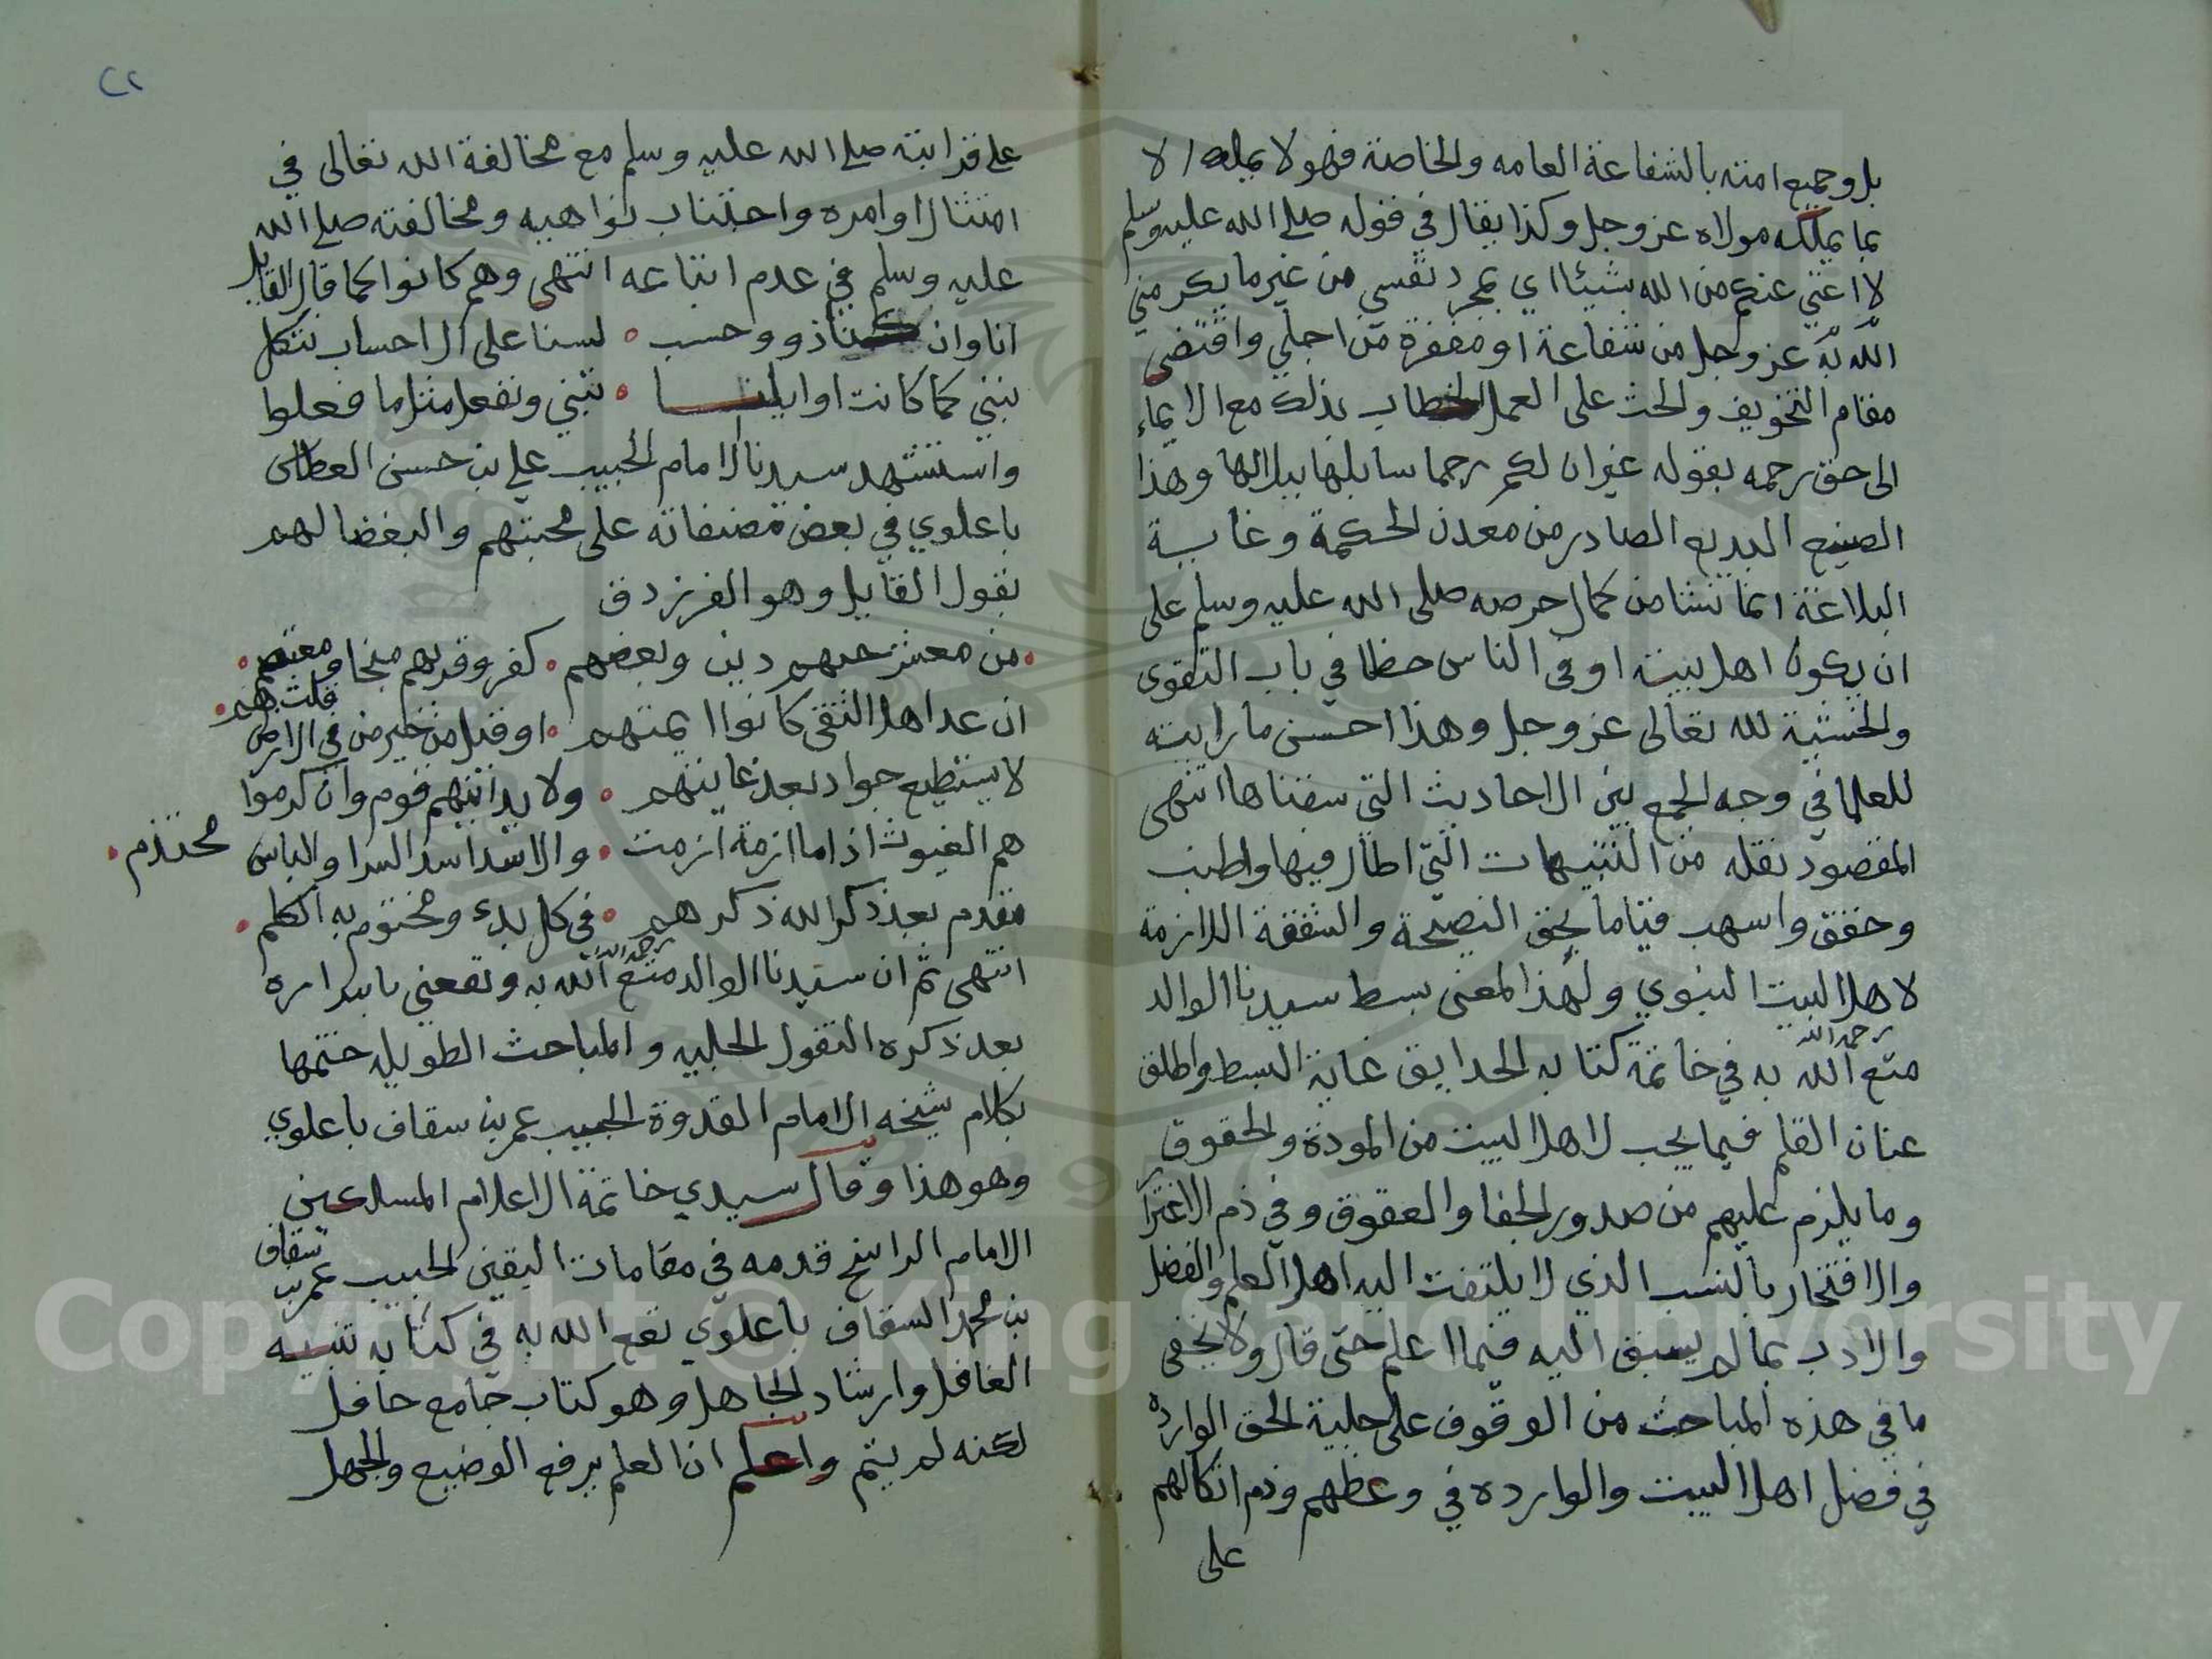 بل وجميع امته بالشفاعة العامه والخاصة فهو لا يملك الا
بما يملكه مولاه عز وجل وكذا يقال في قوله صلى الله عليه وسلم
لا اغني عنكم من الله شيئا اي بمجرد نفسي من غير ما يكرمني
الله به عز وجل من شفاعة او مغفرة من اجلي واقتضى
مقام التخويف والحث على العمل الخطاب بذلك مع الايماء
الى حق رحمه بقوله غير ان لكم رحما سابلها ببلالها وهذا
الصنيع البديع الصادر من معدن الحكمة وغاية
البلاغة انما نشا من كمال حرصه صلى الله عليه وسلم على
ان يكون اهل بيته اوفى الناس حظا في باب التقوى
والخشية لله تعالى عز وجل وهذا احسن ما رايته
للعلما في وجه الجمع بين الاحاديث التي سقناها انتهى
المقصود نقله من التنبيهات التي اطال فيها واطنب
وحقق واسهب قياما بحق النصيحة والشفقة اللازمة
لاهل البيت النبوي ولهذا المعنى بسط سيدنا الوالد
رحمه الله
متع الله به في خاتمة كتابه الحدايق غاية البسط واطلق
عنان القلم فيما يجب لاهل البيت من المودة والحقوق
وما يلزم عليهم من صدور الجفا والعقوق وفي ذم الاغترار
والافتخار بالنسب الذي لا يلتفت اليه اهل العلم والفضل
والادب بما لم يسبق اليه فيما اعلم حتى قال ولا يخفى
ما في هذه المباحث من الوقوف على جلية الحق الوارده
في فضل اهل البيت والوارده في وعظهم وذم اتكالهم
على
٢٢
على قرابته صلى الله عليه وسلم مع مخالفة الله تعالى في
امتثال اوامره واجتناب نواهيه ومخالفته صلى الله
عليه وسلم في عدم اتباعه انتهى وهم كانوا كما قال القايل
انا وان كنا ذوو حسب ٥ لسنا على الاحساب نتكل
نبني كما كانت اوايلنا ٥ تبني ونفعل مثل ما فعلوا
واستشهد سيدنا الامام الحبيب علي بن حسن العطاس
باعلوي في بعض مصنفاته على محبتهم والبغضا لهم
بقول القايل وهو الفرزدق
من معشر حبهم دين وبغضهم ٥ كفر وقربهم منجا ومعتصم
ان عد اهل التقى كانوا ايمتهم ٥ او قيل من خير من في الارض قلت هم
لا يستطيع جواد بعد غايتهم ٥ ولا يدانيهم قوم وان كرموا
هم الغيوث اذا ما ازمة ازمت ٥ والاسد اسد الشرا والباس محتدم
مقدم بعد ذكر الله ذكرهم ٥ في كل بدء ومختوم به الكلم
رحمه الله
انتهى ثم ان سيدنا الوالد متع الله به ونفعني باسراره
بعد ذكره النقول الجليه والمباحث الطويله ختمها
بكلام شيخه الامام القدوة الحبيب عمر بن سقاف باعلوي
وهو هذا وقال سيدي خاتمة الاعلام
الامام الراسخ قدمه في مقامات اليقين الحبيب عمر بن سقاف
بن محمد السقاف باعلوي نفع الله به في كتابه تنبيه
الغافل وارشاد الجاهل وهو كتاب جامع حافل
لكنه لم يتم واعلم ان العلم يرفع الوضيع والجهل